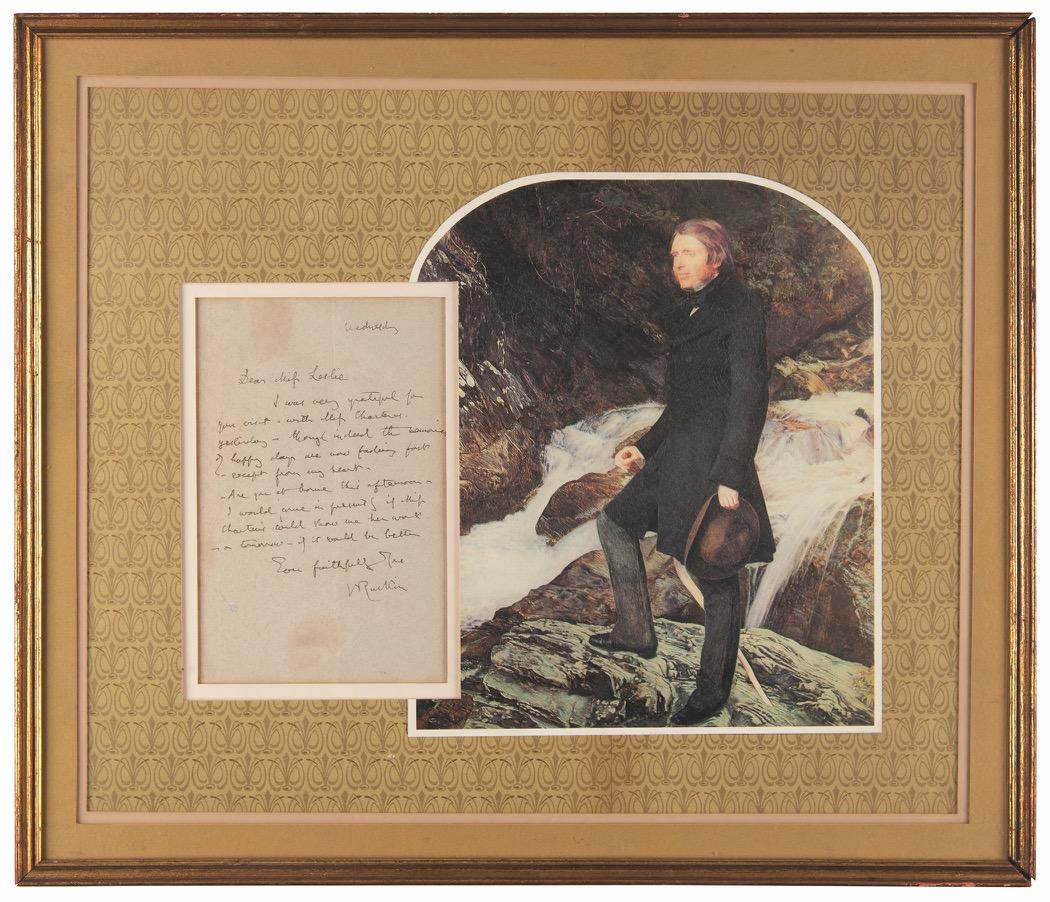 Wednesday
Dear Miss Leslie
I was very grateful for
your visit - with Miss Charteris,
yesterday - though indeed the memories
of happy days are now fading fast
- except from my heart -
- Are you at home this afternoon -
I would come in presently if Miss
Charteris could show me her work
- or tomorrow - if it would be better
Ever faithfully Yrs
JRuskin